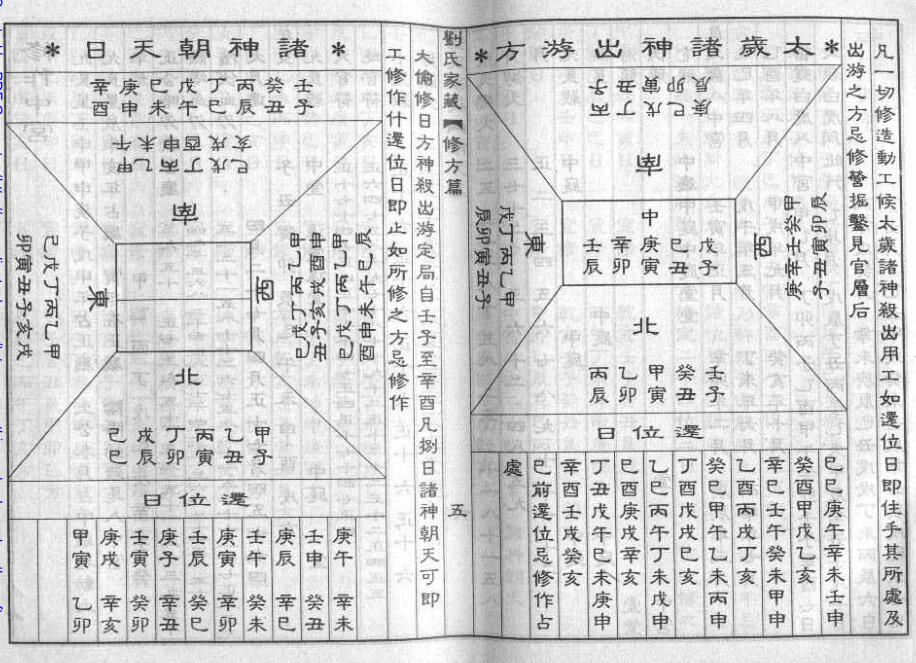 凡一切修造動工候太歲諸神殺出用工如還位日即住手其所處及
出游之方忌修營掘鑿見官層后
*太歲諸神出游方*
庚辰 巳卯 戊寅 丁丑 丙子
南
甲乙丙丁戊
子丑寅卯辰
東
中
戊子 巳丑 庚寅 辛卯 壬辰
西
甲癸壬辛庚
辰卯寅丑子
北
壬子 癸丑 甲寅 乙卯 丙辰
還位日
巳巳庚午辛未壬申
癸酉甲戊乙亥
辛巳壬午癸未甲申
乙酉丙戌丁亥
癸巳甲午乙未丙申
丁酉戊戌巳亥
乙巳丙午丁未戊申
巳酉庚戌辛亥
丁丑戊午巳未庚申
辛酉壬戌癸亥
巳前還位忌修作占
處
劉氏家藏【修方篇 五
大偷修日方神殺出游定局自壬子至辛酉凡捌日諸神朝天可即
工修作什還位日即止如所修之方忌修作
*諸神朝天日*
壬子 癸丑 丙辰 丁巳 戊午 巳未 庚申 辛酉
巳亥 戊戌 丁酉 丙申 乙未 甲午
南
甲乙丙丁戊己
戌亥子丑寅卯
東
西
甲乙丙丁戊巳
申酉戌亥子丑
甲乙丙丁戊巳
辰巳午未申酉
北
甲子 乙丑 丙寅 丁卯 戊辰 己巳
還位日
庚午 辛未
壬申 癸丑
庚辰 辛巳
壬午 癸未
庚寅 辛卯
壬辰 癸巳
庚子 辛丑
壬寅 癸卯
庚戌 辛亥
甲寅 乙卯